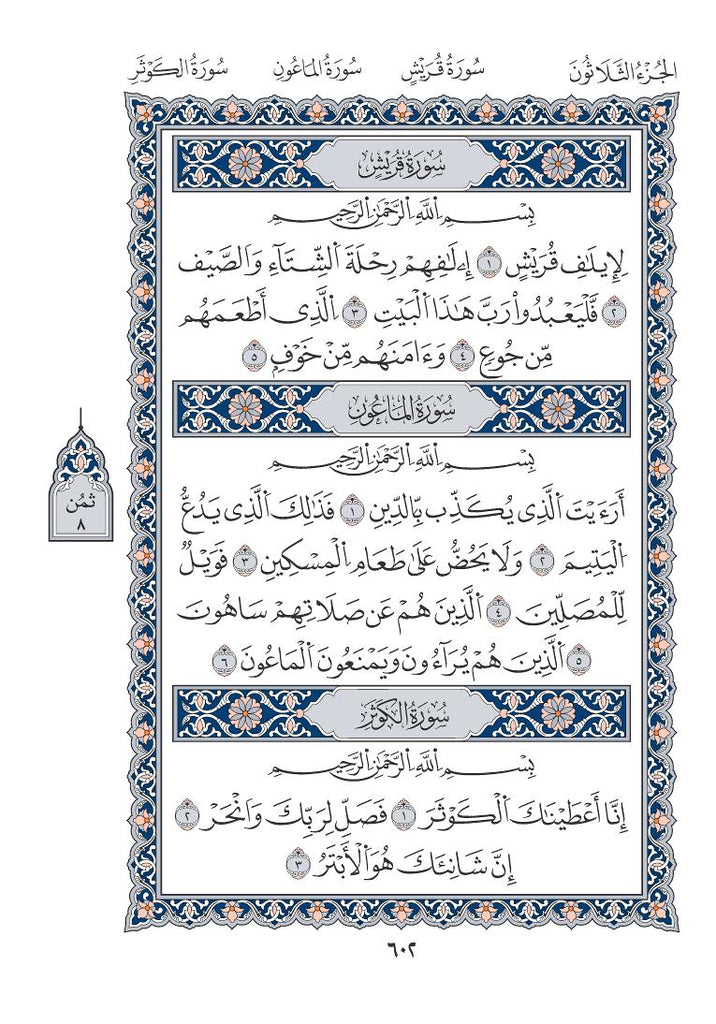 الجُزْءُ الثَّلَاثُونَ سُورَةُ قُرَيْشٍ سُورَةُ المَاعُونِ سُورَةُ الكَوْثَرِ
سُورَةُ قُرَيْشٍ
بِسْمِ اِ۬للَّهِ اِ۬لرَّحْمَٰنِ اِ۬لرَّحِيمِ
لِإِيلَٰفِ قُرَيْشٍ ١ إِۦلَٰفِهِمْ رِحْلَةَ اَ۬لشِّتَآءِ وَالصَّيْفِ
٢ فَلْيَعْبُدُواْ رَبَّ هَٰذَا اَ۬لْبَيْتِ ٣ اِ۬لذِى أَطْعَمَهُم
مِّن جُوعٍ ٤ وَءَامَنَهُم مِّنْ خَوْفٍ ٥
سُورَةُ المَاعُونِ
ثُمُن
٨
بِسْمِ اِ۬للَّهِ اِ۬لرَّحْمَٰنِ اِ۬لرَّحِيمِ
أَرَءَيْتَ اَ۬لذِى يُكَذِّبُ بِالدِّينِ ١ فَذَٰلِكَ اَ۬لذِى يَدُعُّ
اُ۬لْيَتِيمَ ٢ وَلَا يَحُضُّ عَلَىٰ طَعَامِ اِ۬لْمِسْكِينِ ٣ فَوَيْلٌ
لِّلْمُصَلِّينَ ٤ اَ۬لذِينَ هُمْ عَن صَلَاتِهِمْ سَاهُونَ
٥ اَ۬لذِينَ هُمْ يُرَآءُونَ وَيَمْنَعُونَ اَ۬لْمَاعُونَ ٦
سُورَةُ الكَوْثَرِ
بِسْمِ اِ۬للَّهِ اِ۬لرَّحْمَٰنِ اِ۬لرَّحِيمِ
إِنَّا أَعْطَيْنَٰكَ اَ۬لْكَوْثَرَ ١ فَصَلِّ لِرَبِّكَ وَانْحَرْ ٢
إِنَّ شَانِئَكَ هُوَ اَ۬لْأَبْتَرُ ٣
٦٠٢